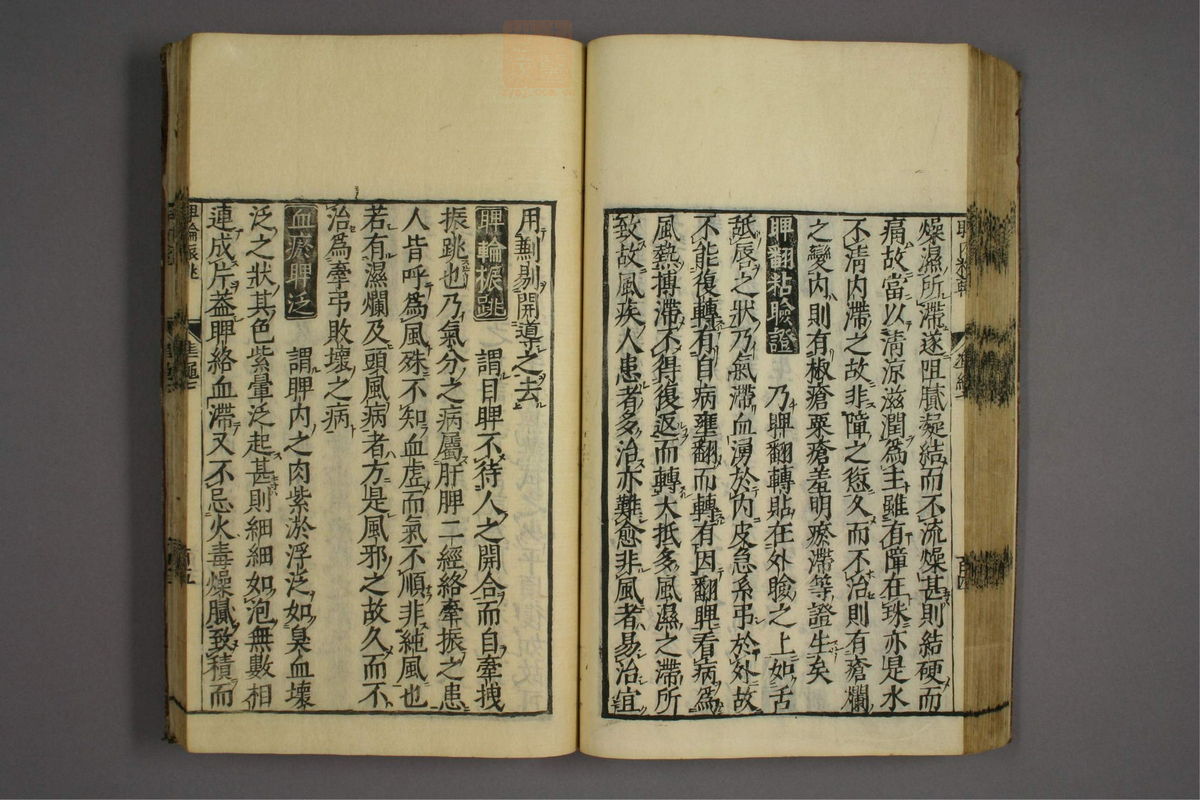 燥濕所滯遂阻膩凝結而不流燥甚則結硬而
痛故當以清涼滋潤爲主雖有障在珠亦是水
不清内滯之故非障之愆久而不治則有瘡爛
之變内則有椒瘡粟瘡羞明瘀滯等證生矣
睥翻粘瞼證 乃睥翻轉貼在外瞼之上如舌
舐唇之狀乃氣滯血湧於内皮急系弔於外故
不能復轉有自病壅翻而轉有因翻睥看病爲
風熱搏滯不得復返而轉大抵多風濕之滯所
致故風疾人患者多治亦難愈非風者易治宜
用劆剔開導之去
睥輪振跳 謂目睥不待人之開合而自牽拽
振跳也乃氣分之病屬肝脾二經絡牽振之患
人皆呼爲風殊不知血虛而氣不順非純風也
若有濕爛及頭風病者方是風邪之故久而不
治爲牽弔敗壞之病
血瘀睥泛 謂睥内之肉紫淤浮泛如臭血壞
泛之狀其色紫暈泛起甚則細細如泡無數相
連成片葢睥絡血滯又不忌火毒燥膩致積而
睥輪振跳
百五
百四